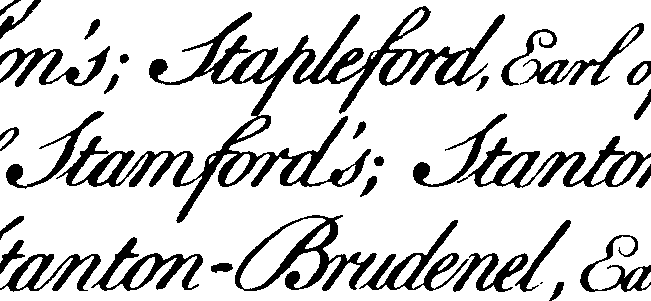 on's; Stapleford, Earl o
Stamford's; Stanton
Stanton-Brudenel, Ea